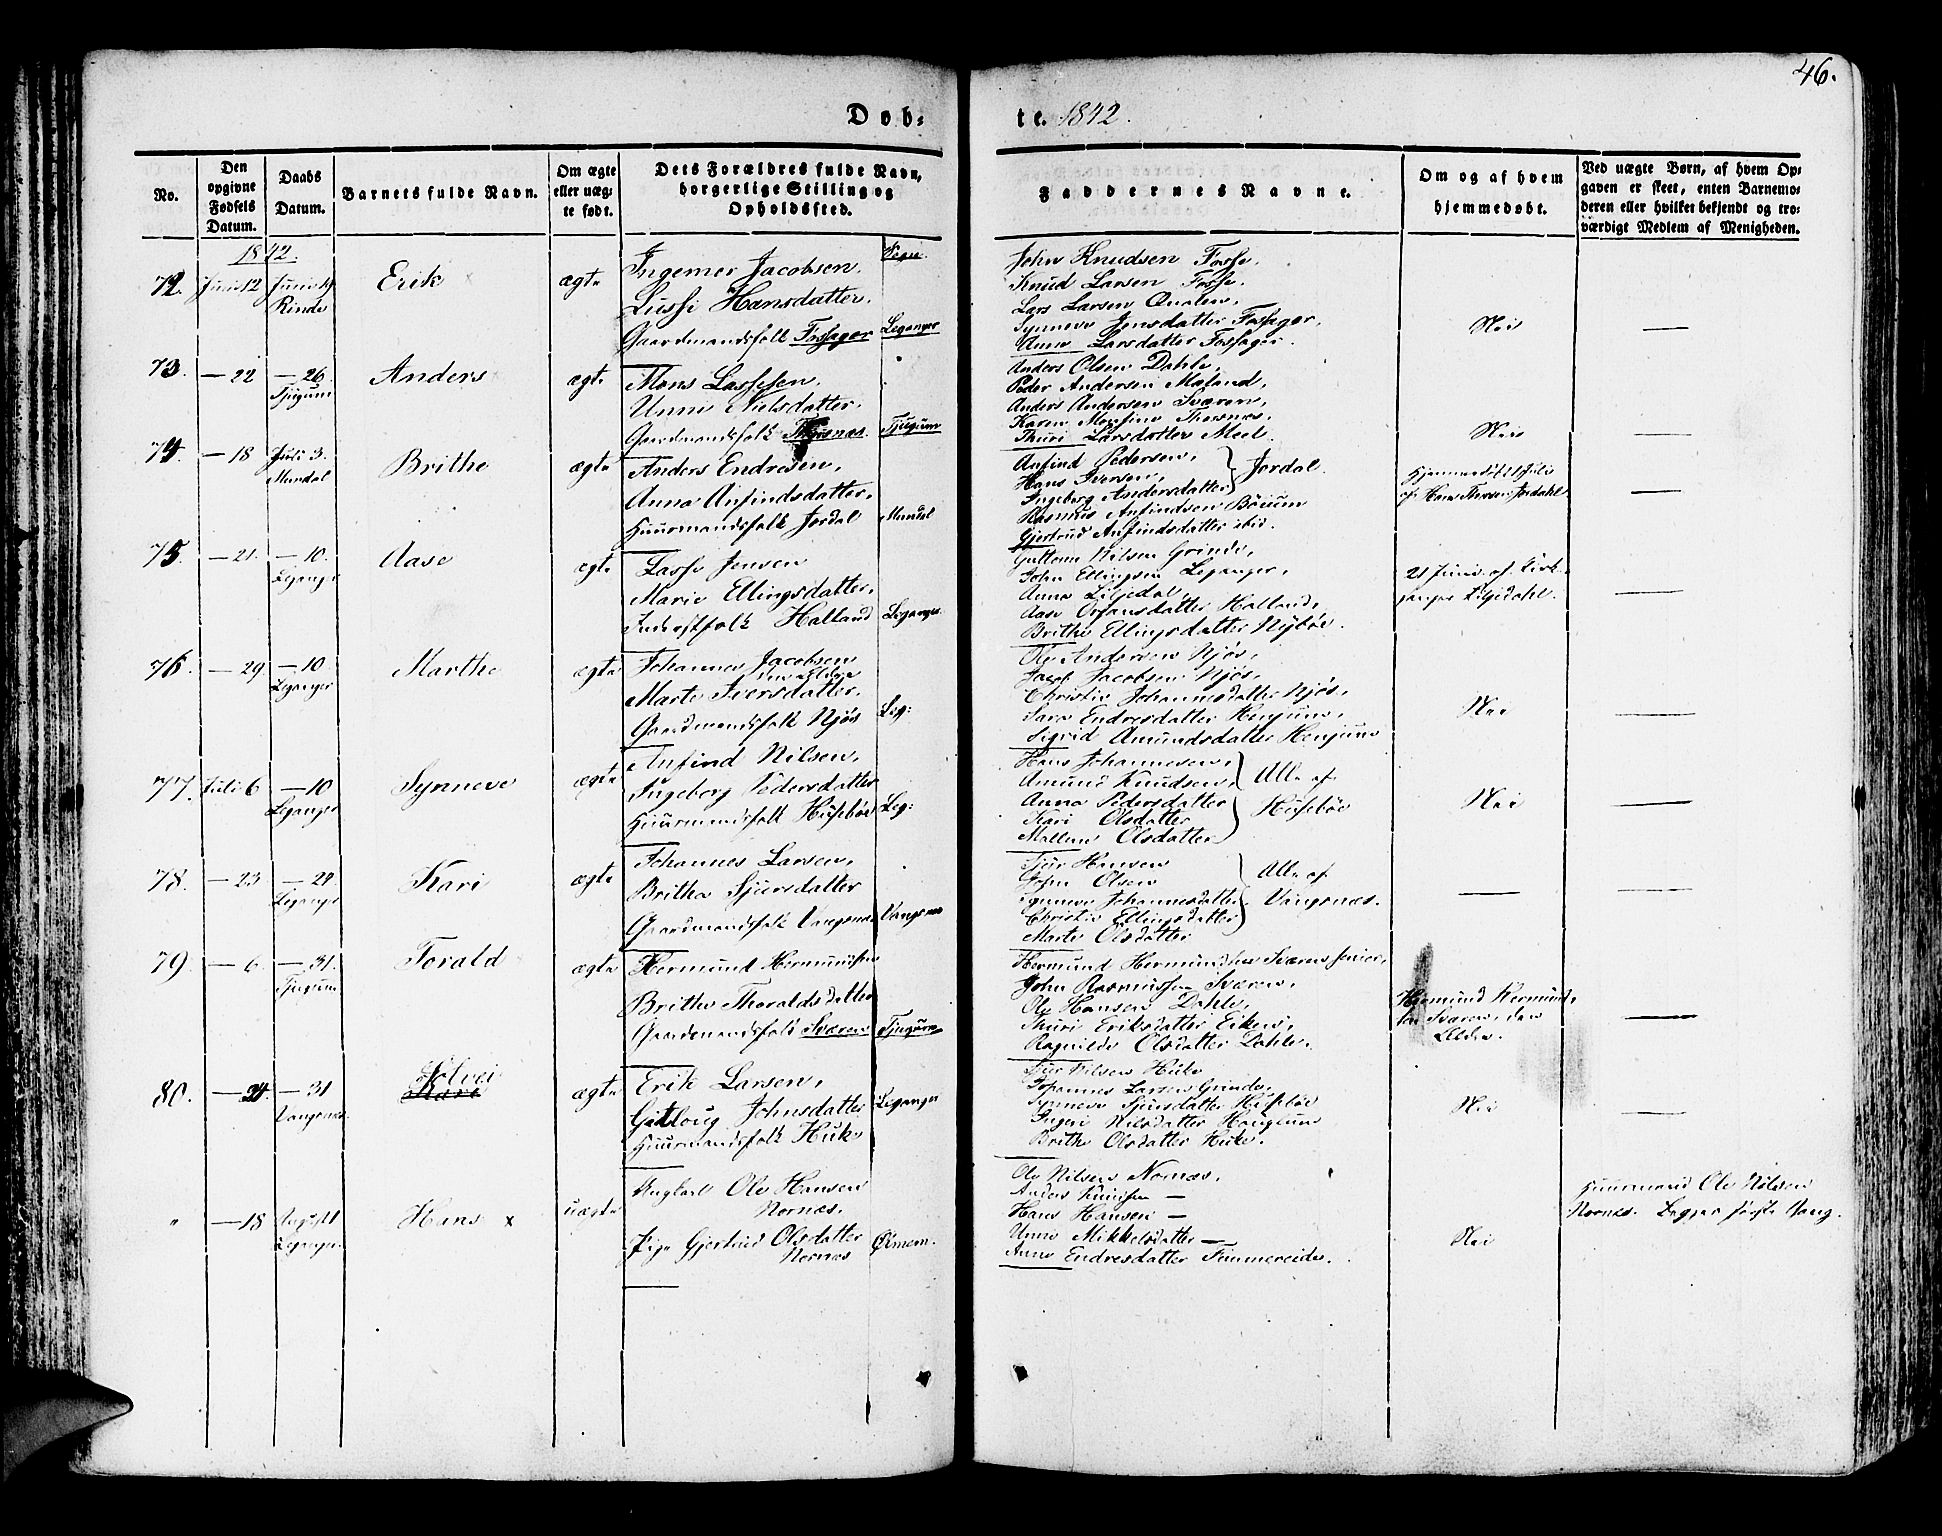 46.
Døb-
te. 1842.
No.
Den opgivne Fødsels Datum.
Daabs Datum.
Barnets fulde Navn.
Om ægte eller uægte født.
Dets Forældres fulde Navn, borgerlige Stilling og Opholdssted.
Faddernes Navne.
Om og af hvem hjemmedøbt.
Ved uægte Børn, af hvem Opgaven er skeet, enten Barnemoderen eller hvilket bekjendt og troværdigt Medlem af Menigheden.
1842.
72. Juni 12 Juni Rinde Erik ægte
Ingemer Jacobsen.
Hansdatter.
Gaardmandsfolk Fosager Leganger
John Knudsen Fosse.
Knud Larsen Fosse.
Lars Larsen Qvalen.
Synneve Jensdatter Fosager.
Anne Larsdatter Fosager.
Nei —
73. — 22 — 26. Tjugum Anders ægte
Mons Lassesen.
Unni Nielsdatter.
Gaardmandsfolk Tjugum
Anders Olsen Dahle,
Peder Andersen Mæland,
Anders Andersen Sværen,
Thuri Larsdatter Meel.
Nei —
74. — 18 Juli 3. Mundal Brithe ægte
Anders Endresen,
Anna Anfindsdatter,
Huusmandsfolk Jordal Mundal
Anfind Pedersen,
Hans Iversen,
Ingeborg Andersdatter } Jordal.
Rasmus Anfindsen Bøium
Gjertrud Anfindsdatter ibid.
af Hans Jordahl. —
75. — 21. — 10. Leganger Aase ægte
Lasse Jensen
Marie Ellingsdatter,
Inderstfolk Halland Leganger
Guttorm Nilsen Grinde,
John Ellingsen Leganger,
Anna Liljedal,
Aase Halland,
Brithe Ellingsdatter Nybøe.
21 Juni af Kirkesanger Liljedahl. —
76. — 29. — 10 Leganger Marthe ægte
Johannes Jacobsen
Marte Iversdatter.
Gaardmandsfolk Njøs Leg:
Ole Andersen Njøs,
Jacob Jacobsen Njøs,
Christie Johannesdatter Njøs,
Sara Endresdatter Henjum,
Sigrid Amundsdatter Henjum
Nei —
77. Juli 6 — 10 Leganger Synneve ægte
Anfind Nilsen,
Ingeborg Pedersdatter
Huusmandsfolk Husebøe Leg:
Hans Johannesen,
Amund Knudsen,
Anna Pedersdatter
Kari Olsdatter
Mallene Olsdatter } Alle af Husebøe
Nei —
78. — 23 — 24. Leganger Kari ægte
Johannes Larsen,
Britha Sjursdatter
Gaardmandsfolk Vangsnæs Vangsnæs
Sjur Hansen
John Olsen
Synneve Johannesdatter
Christie Ellingsdatter
Marte Olsdatter } Alle af Vangsnæs.
— —
79. — 6. — 31. Tjugum Torald ægte
Hermund Hermundsen
Brithe Thoraldsdatter
Gaardmandsfolk Sværen Tjugum
Hermund Hermundsen Sværen senior,
John Rasmussen Sværen,
Ole Hansen Dahle,
Thuri Eriksdatter Eiken,
Ragnilde Olsdatter Dahle.
Hermund Hermundsen Sværen, den Ældre. —
80. — 24. — 31 Vangsnæs Sølvei Kari ægte
Erik Larsen,
Johnsdatter
Huusmandsfolk Huke Leganger
Sjur Nilsen Huke
Johannes Larsen Grinde,
Synneve Sjursdatter Husebøe
Ingeri Nilsdatter Haugum
Brithe Olsdatter Huke.
Nei —
" — 18 August Leganger Hans x uægte
Ungkarl Ole Hansen Nornæs.
Pige Gjertrud Olsdatter Nornæs
Ole Nilsen Nornæs.
Anders Knudsen —
Hans Hansen —
Unni Mikkelsdatter —
Anne Endresdatter Timmereide.
Nei
Huusmand Ole Nilsen Nornæs. Begges første Gang.